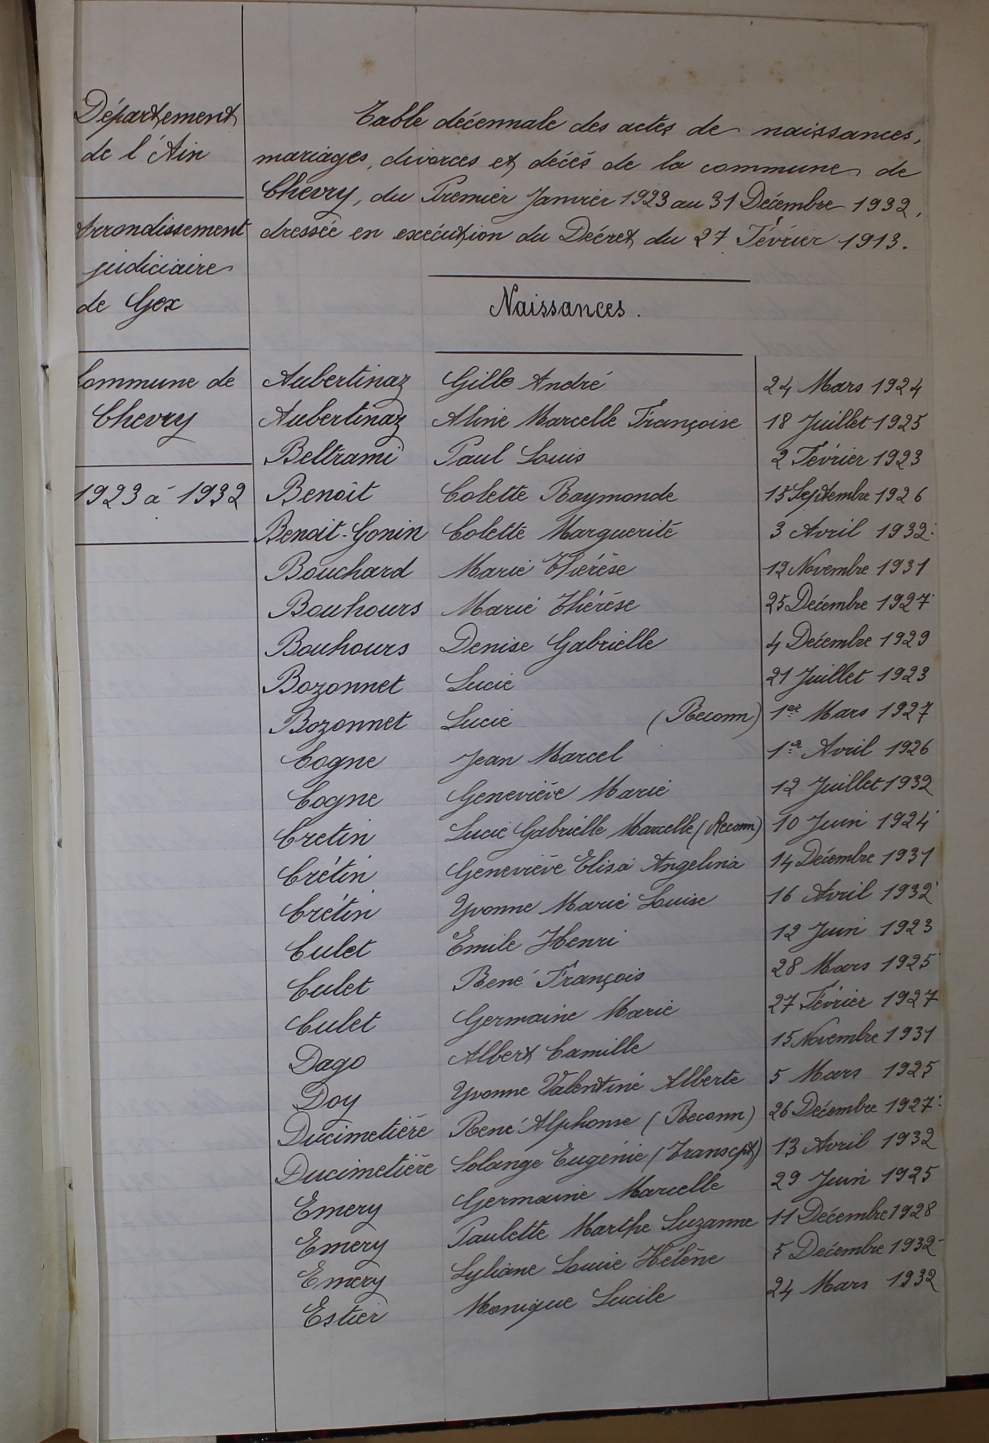 Département
de l'Ain
Arrondissement
judiciaire
de Gex
Commune de
Chevry
1923 à 1932
Table décennale des actes de naissances,
mariages, divorces et décès de la commune de
Chevry, du Premier Janvier 1923 au 31 Décembre 1932,
dressée en exécution du Décret du 27 Février 1913.
Naissances.
Aubertinaz Gille André 24 Mars 1924
Aubertinaz Aline Marcelle Françoise 18 Juillet 1925
Beltrami Paul Louis 2 Février 1923
Benoît Colette Raymonde 15 Septembre 1926
Benoit-Gonin Colette Marguerite 3 Avril 1932
Bouchard Marie Thérèse 12 Novembre 1931
Bouhours Marie Thérèse 25 Décembre 1927
Bouhours Denise Gabrielle 4 Décembre 1929
Bozonnet Lucie 21 Juillet 1923
Bozonnet Lucie (Reconn) 1er Mars 1927
Cogne Jean Marcel 1er Avril 1926
Cogne Geneviève Marie 12 Juillet 1932
Cretin Lucie Gabrielle Marcelle (Reconn) 10 Juin 1924
Crétin Geneviève Elisa Angelina 14 Décembre 1931
Crétin Yvonne Marie Louise 16 Avril 1932
Culet Emile Henri 12 Juin 1923
Culet René François 28 Mars 1925
Culet Germaine Marie 27 Février 1927
Dago Albert Camille 15 Novembre 1931
Doy Yvonne Valentine Alberte 5 Mars 1925
Ducimetière René Alphonse (Reconn) 26 Décembre 1927
Ducimetière Solange Eugénie (Transcpt) 13 Avril 1932
Emery Germaine Marcelle 29 Juin 1925
Emery Paulette Marthe Suzanne 11 Décembre 1928
Emery Lyliane Lucie Hélène 5 Décembre 1932
Estier Monique Lucile 24 Mars 1932